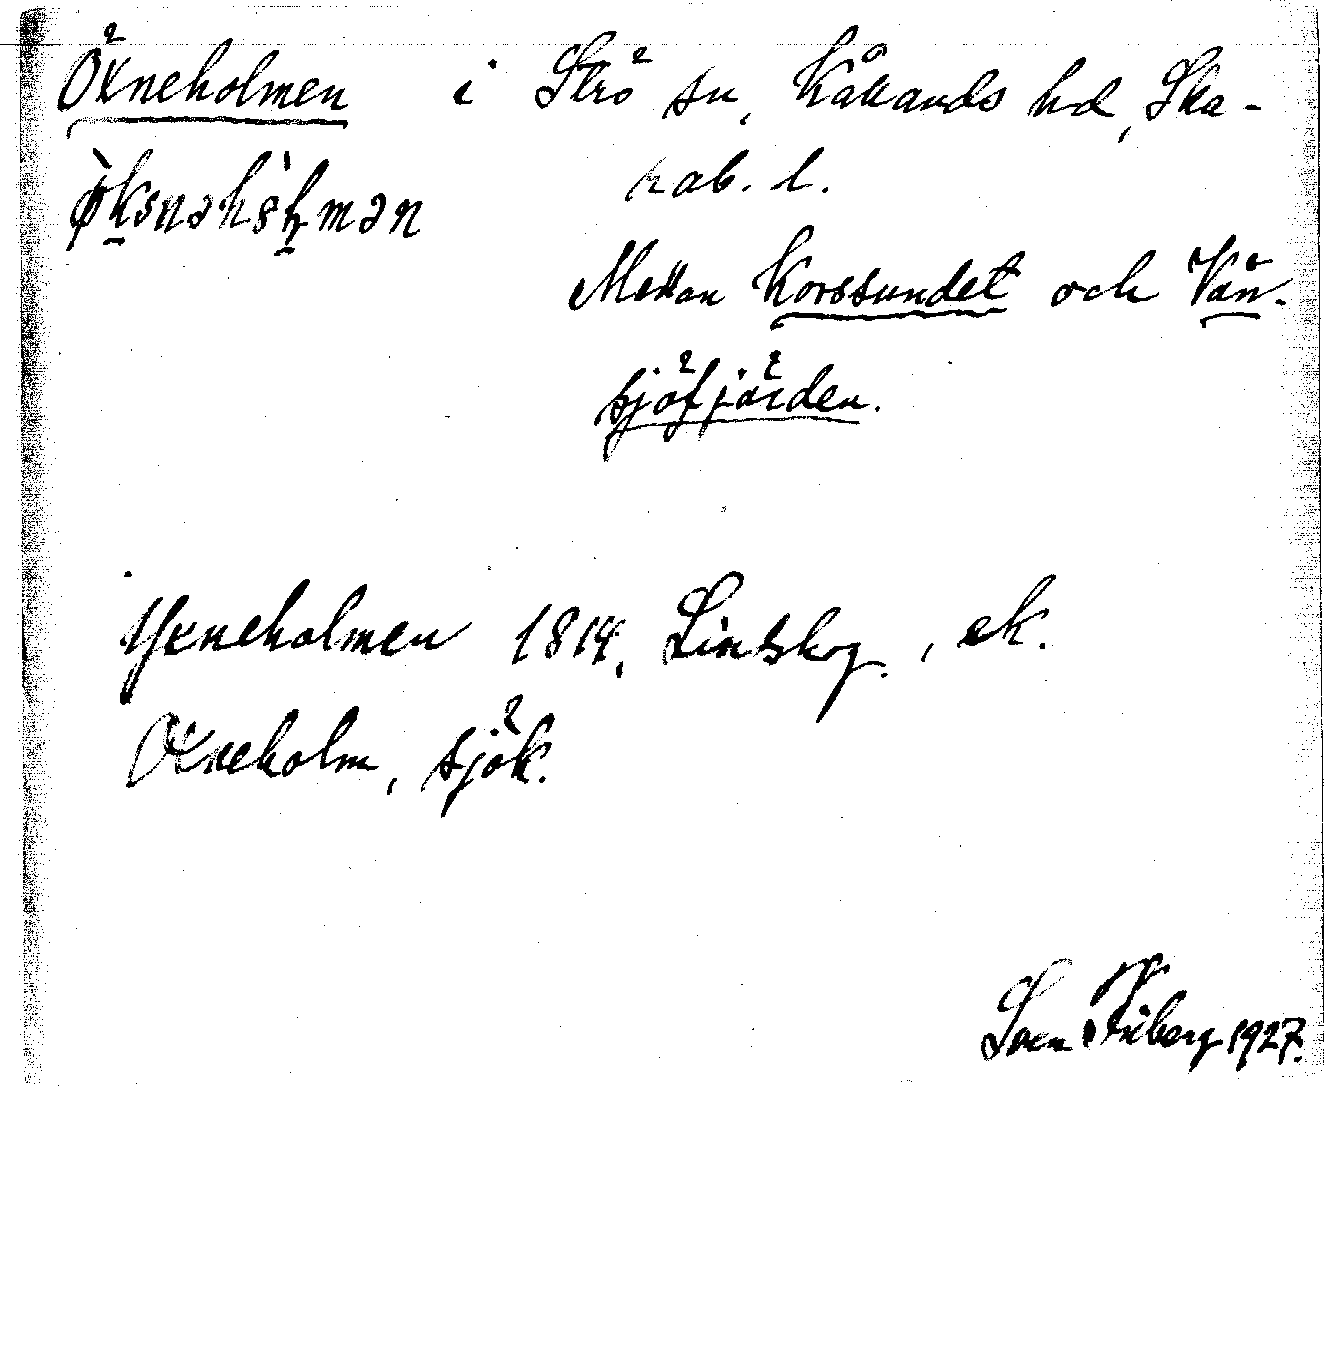 Öxneholmen i Strö sn, Kållands hd, Ska-
rab. l.
Mellan Korssundet och Vän-
sjöfjärden.
Yxneholmen 1814, Lindskog., ek.
Öxneholm, sjök.
Sven Friberg 1927.